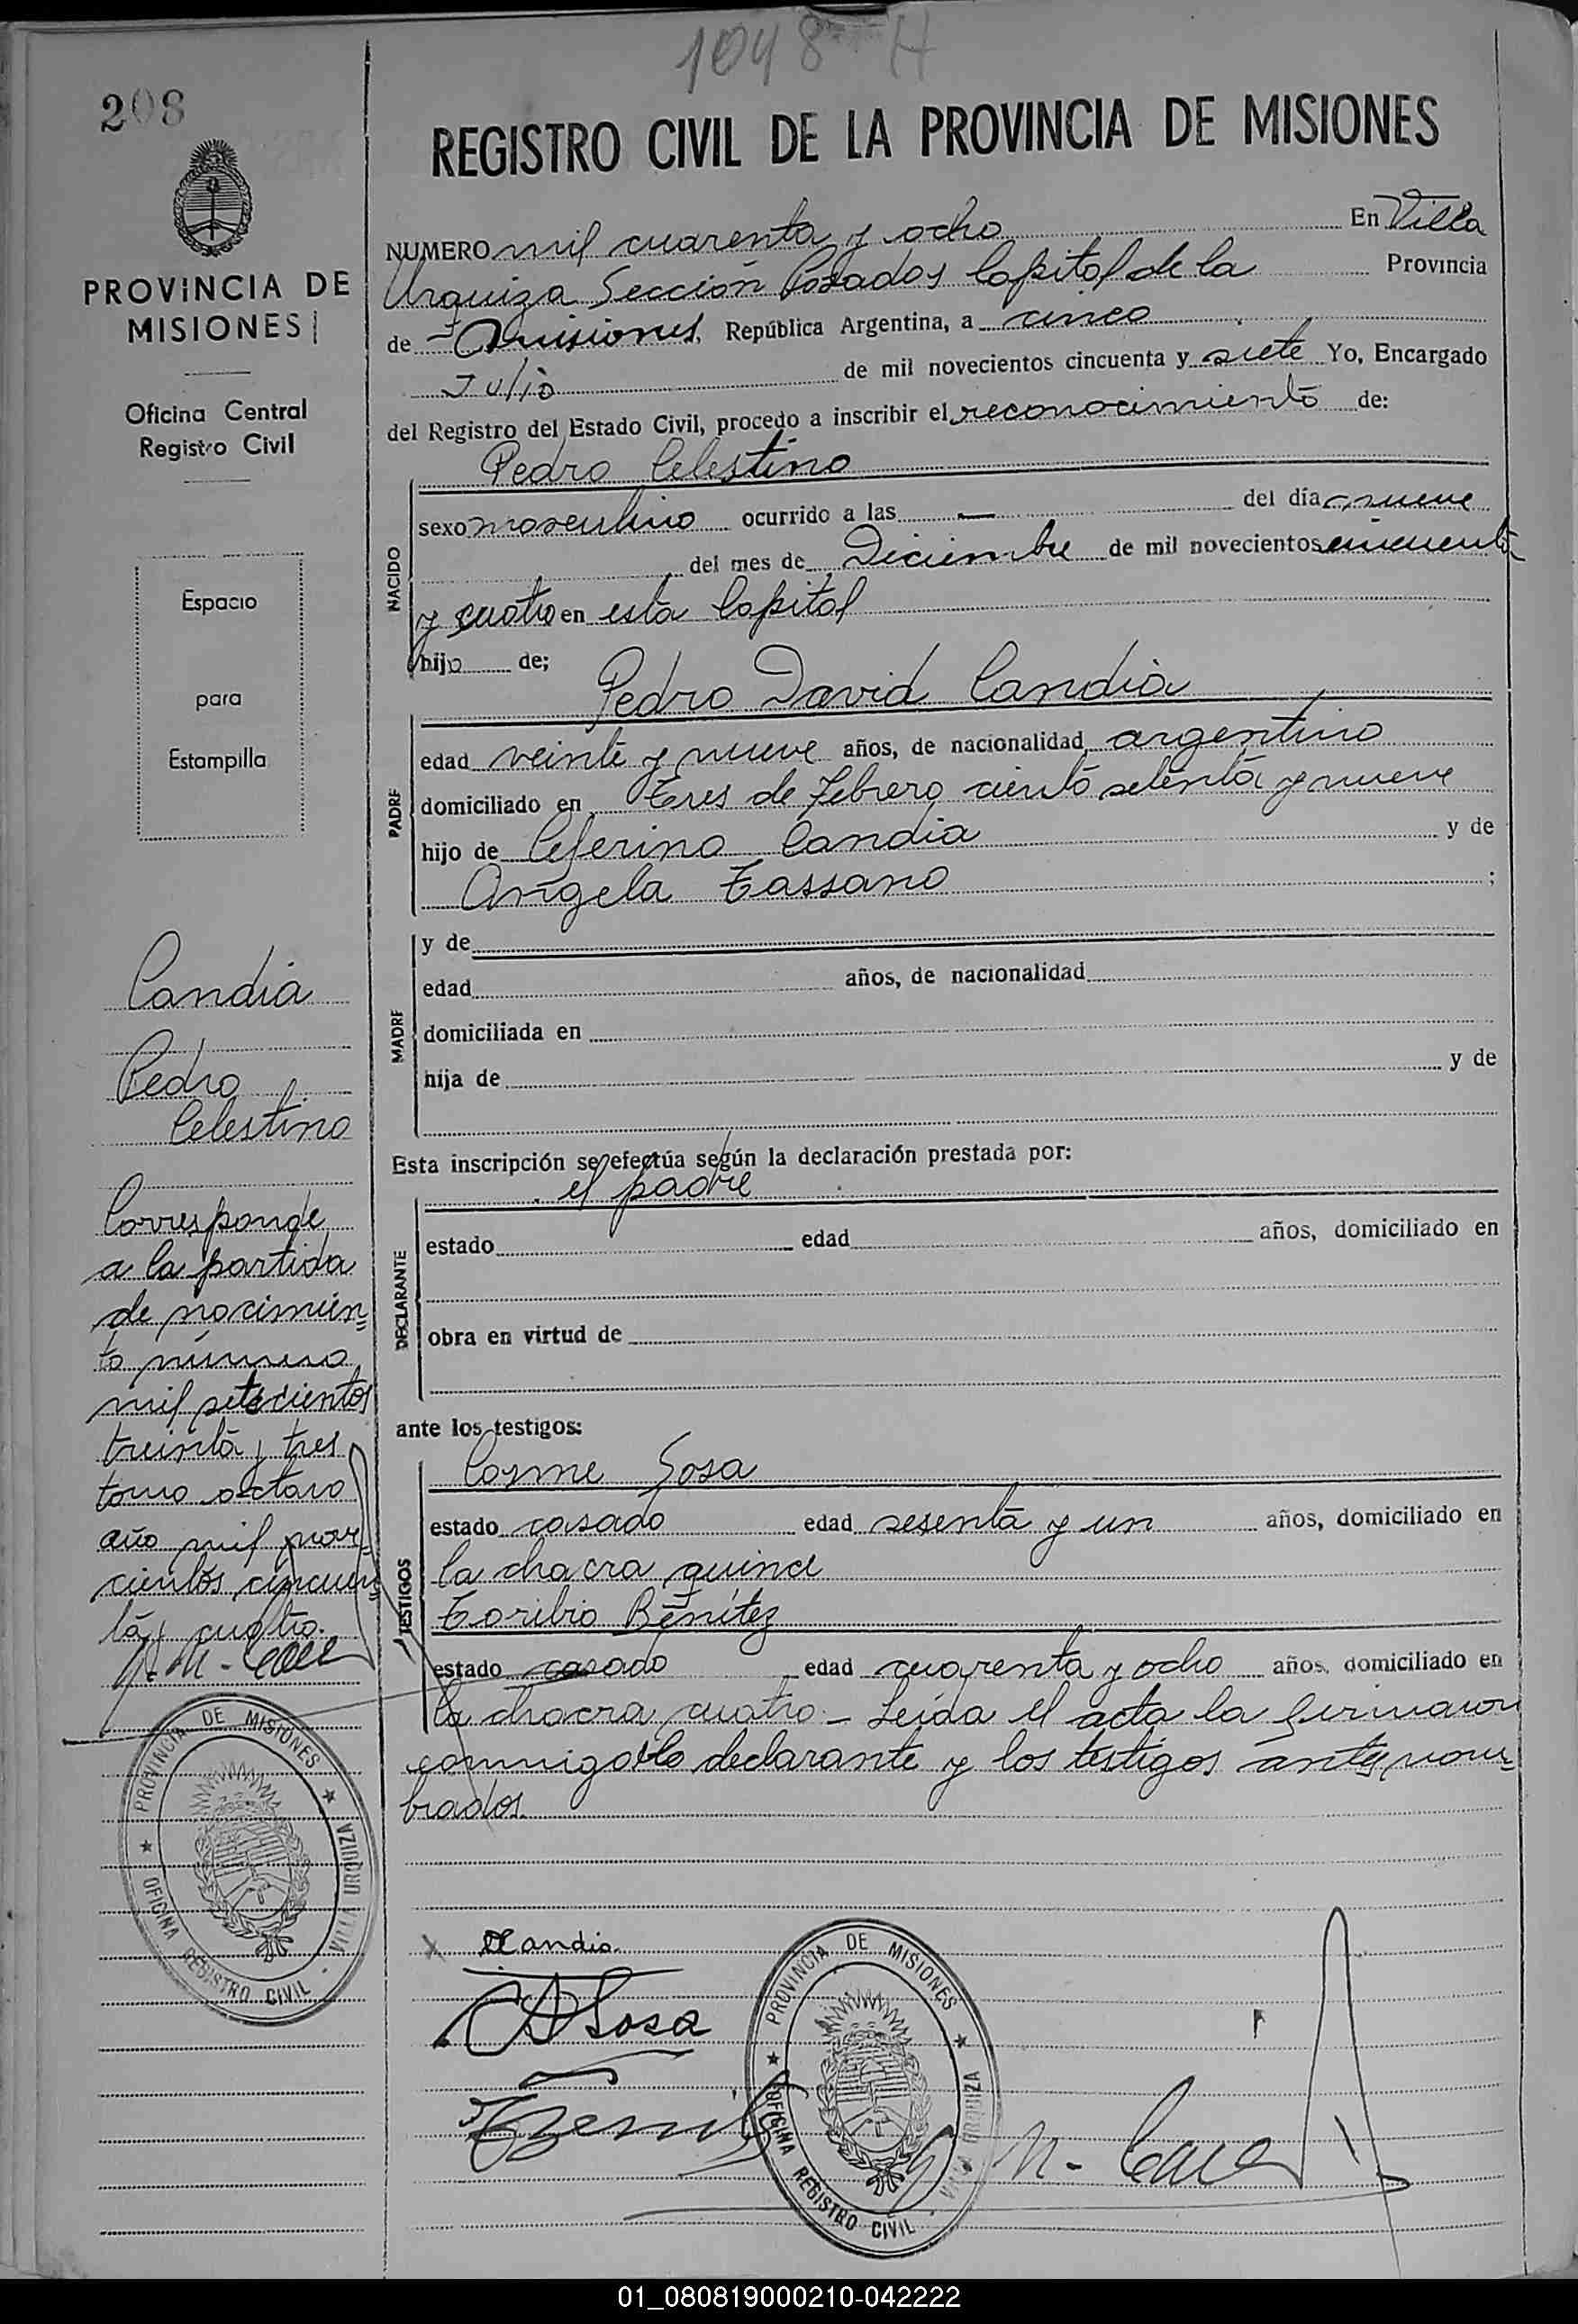 1048 H
208
REGISTRO CIVIL DE LA PROVINCIA DE MISIONES
PROVINCIA DE
MISIONES
Oficina Central
Registro Civil
Espacio
para
Estampilla
Candia
Pedro
Celestino
Corresponde
a la partida
de nacimien=
to número
mil setecientos
treinta y tres
tomo octavo
año mil nove
cientos cincuen
ta y cuatro.
PROVINCIA DE MISIONES
OFICINA REGISTRO CIVIL · VILLA URQUIZA
NUMERO mil cuarenta y ocho En Villa
Urquiza Sección Posadas Capital de la Provincia
de Misiones, República Argentina, a cinco
Julio de mil novecientos cincuenta y siete Yo, Encargado
del Registro del Estado Civil, procedo a inscribir el reconocimiento de:
Pedro Celestino
NACIDO
sexo masculino ocurrido a las — del día nueve
del mes de Diciembre de mil novecientos cincuenta
y cuatro en esta Capital
hijo de;
Pedro David Candia
PADRE
edad veinte y nueve años, de nacionalidad argentino
domiciliado en Tres de Febrero ciento setenta y nueve
hijo de Ceferino Candia y de
Angela Tassano ;
MADRE
y de
edad años, de nacionalidad
domiciliada en
hija de y de
Esta inscripción se efectúa según la declaración prestada por:
el padre
DECLARANTE
estado edad años, domiciliado en
obra en virtud de
ante los testigos:
TESTIGOS
Cosme Sosa
estado casado edad sesenta y un años, domiciliado en
la chacra quince
Toribio Benítez
estado casado edad cuarenta y ocho años, domiciliado en
la chacra cuatro - Leída el acta la firmaron
conmigo el declarante y los testigos antes nom=
brados.
Candia
Sosa
PROVINCIA DE MISIONES
OFICINA REGISTRO CIVIL · VILLA URQUIZA
01_080819000210-042222